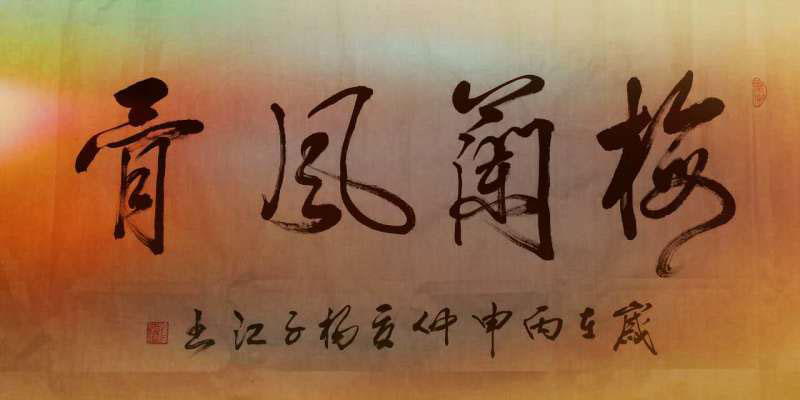 梅蘭風骨
歲在丙申仲夏楊子江书